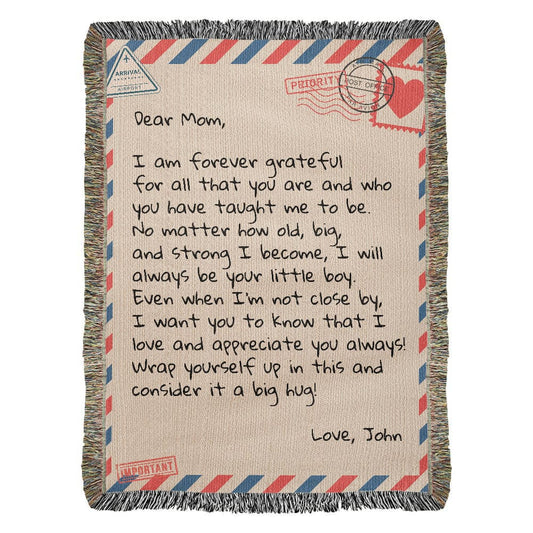 ARRIVAL
AIRPORT
PRIORITY
POST OFFICE
Dear Mom,
I am forever grateful
for all that you are and who
you have taught me to be.
No matter how old, big,
and strong I become, I will
always be your little boy.
Even when I'm not close by,
I want you to know that I
love and appreciate you always!
Wrap yourself up in this and
consider it a big hug!
Love, John
IMPORTANT